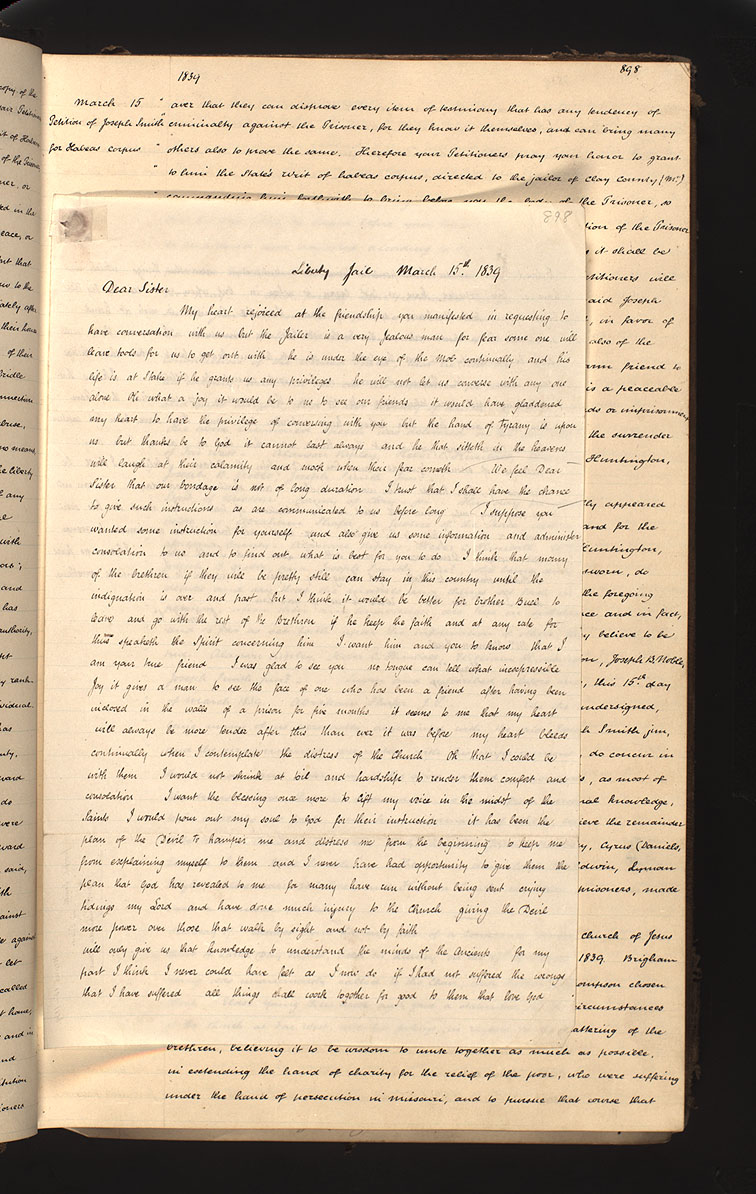 1839
898
March 15 " aver that they can disprove every item of testimony that has any tendency of
Petition of Joseph Smith " criminality against the Prisoner, for they know it themselves, and can bring many
for Habeas corpus " others also to prove the same. Therefore your Petitioners pray your honor to grant
" to him the State's writ of habeas corpus, directed to the jailor of Clay County (Mo.)
commanding him forthwith to bring before you the body of the Prisoner, so
898
Liberty Jail March 15th. 1839
Dear Sister
My heart rejoiced at the friendship you manifested in requesting to
have conversation with us but the Jailer is a very Jealous man for fear some one will
leave tools for us to get out with he is under the eye of the Mob continually and his
life is at Stake if he grants us any privileges he will not let us converse with any one
alone Oh what a joy it would be to us to see our friends it would have gladdened
my heart to have the privilege of conversing with you but the hand of tyrany is upon
us but thanks be to God it cannot last always and he that sitteth in the heavens
will laugh at their calamity and mock when their fear cometh We feel Dear
Sister that our bondage is not of long duration I trust that I shall have the chance
to give such instructions as are communicated to us before long I suppose you
wanted some instruction for yourself and also give us some information and administer
consolation to us and to find out what is best for you to do I think that many
of the brethren if they will be pretty still can stay in this country until the
indignation is over and past but I think it would be better for brother Buel to
leave and go with the rest of the Brethren if he keep the faith and at any rate for
thus speaketh the Spirit concerning him I want him and you to know that I
am your true friend I was glad to see you no tongue can tell what inexpressible
Joy it gives a man to see the face of one who has been a friend after having been
inclosed in the walls of a prison for five months it seems to me that my heart
will always be more tender after this than ever it was before my heart bleeds
continually when I contemplate the distress of the Church Oh that I could be
with them I would not shrink at toil and hardship to render them comfort and
consolation I want the blessing once more to lift my voice in the midst of the
Saints I would pour out my soul to God for their instruction it has been the
plan of the Devil to hamper me and distress me from the beginning to keep me
from explaining myself to them and I never have had opportunity to give them the
plan that God has revealed to me for many have run without being sent crying
tidings my Lord and have done much injury to the Church giving the Devil
more power over those that walk by sight and not by faith
will only give us that knowledge to understand the minds of the Ancients for my
part I think I never could have felt as I now do if I had not suffered the wrongs
that I have suffered all things shall work together for good to them that love God
brethren, believing it to be wisdom to unite together as much as possible,
in extending the hand of charity for the relief of the poor, who were suffering
under the hand of persecution in missouri, and to pursue that course that